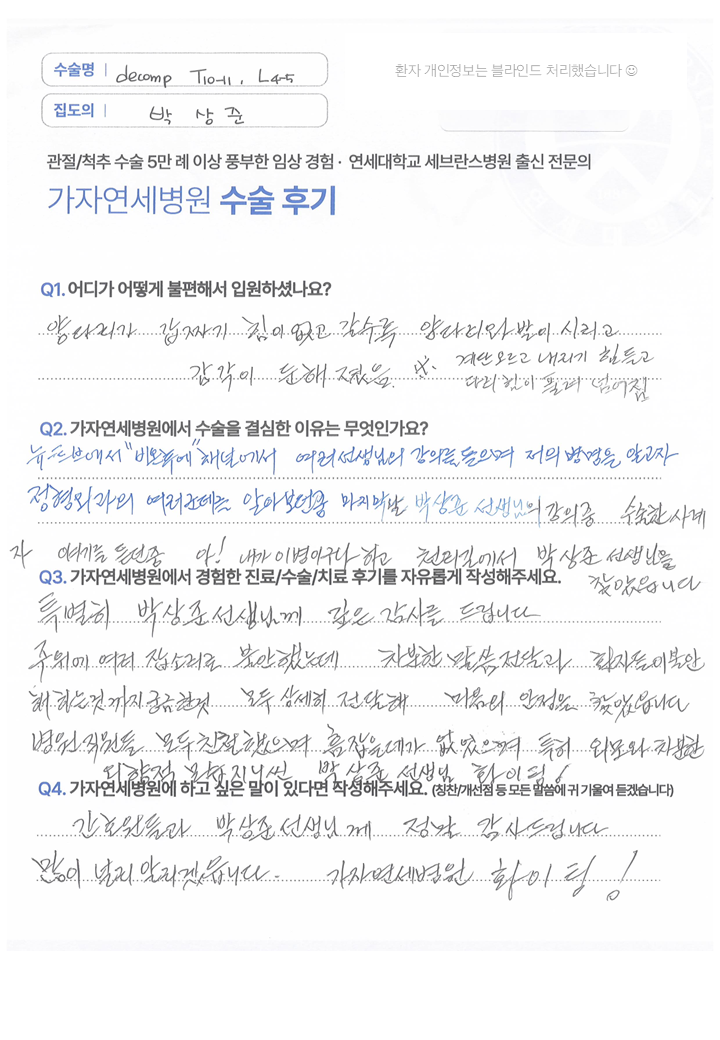 수술명 | decomp T10-11, L4-5
환자 개인정보는 블라인드 처리했습니다 ☺
집도의 | 박 상 준
관절/척추 수술 5만 례 이상 풍부한 임상 경험 · 연세대학교 세브란스병원 출신 전문의
가자연세병원 수술 후기
Q1. 어디가 어떻게 불편해서 입원하셨나요?
양다리가 갑짜기 힘이없고 갈수록 양다리와발이 시리고
감각이 둔해졌음. ※ 계단오르고 내리기 힘들고
다리힘이 풀려 넘어짐
Q2. 가자연세병원에서 수술을 결심한 이유는 무엇인가요?
에서 채널에서 여러선생님의 강의를들으며 저의병명을 알고자
정형외과의 여러군데를 알아보던중 마지막날 박상준 선생님의강의중 수술한사례
자 얘기를 듣던중 아! 내가이병이구나 하고 천리길에서 박상준 선생님을
Q3. 가자연세병원에서 경험한 진료/수술/치료 후기를 자유롭게 작성해주세요.
찾았읍니다
특별히 박상준선생님께 깊은 감사를 드립니다
주위에 여러 잡소리로 불안했는데 차분한 말씀전달과 환자들이불안
해하는것까지궁금한것 모두상세히 전달해 마음의 안정을 찾았읍니다
병원직원들 모두친절했으며 흠잡을데가 없었으며 특히 외모와 차분한
박상준 선생님 화이팅!
Q4. 가자연세병원에 하고 싶은 말이 있다면 작성해주세요. (칭찬/개선점 등 모든 말씀에 귀 기울여 듣겠습니다)
간호원들과 박상준선생님께 정말 감사드립니다
많이 널리알리겠읍니다. 가자연세병원 화이팅!